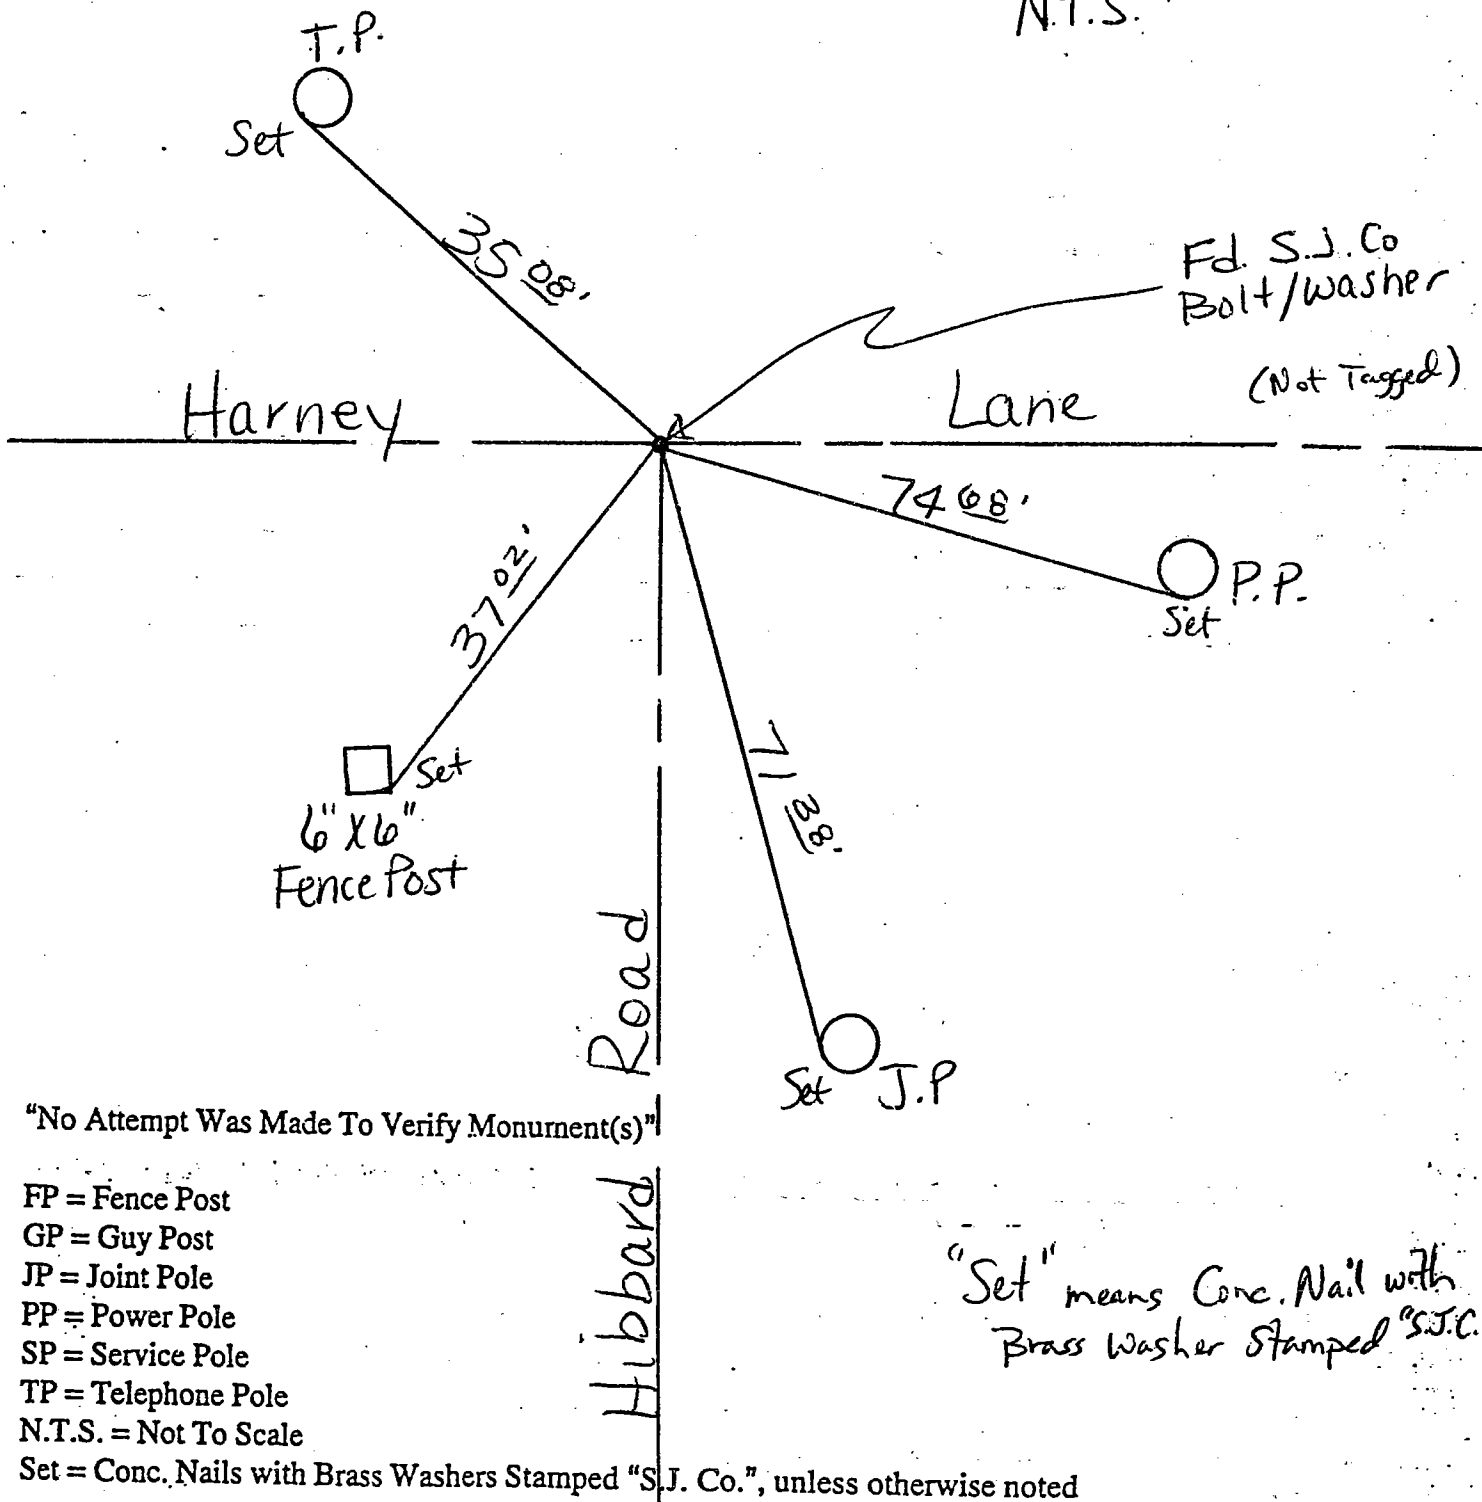 N.T.S.
T.P.
Set
35 08'
Fd. S.J. Co
Bolt/Washer
(Not Tagged)
Harney Lane
A
74 68'
P.P.
Set
37 02'
Set
6" X 6"
Fence Post
71 38'
Set J.P
Hibbard Road
"No Attempt Was Made To Verify Monument(s)"
FP = Fence Post
GP = Guy Post
JP = Joint Pole
PP = Power Pole
SP = Service Pole
TP = Telephone Pole
N.T.S. = Not To Scale
Set = Conc. Nails with Brass Washers Stamped "S.J. Co.", unless otherwise noted
"Set" means Conc. Nail with
Brass Washer Stamped "S.J.C.